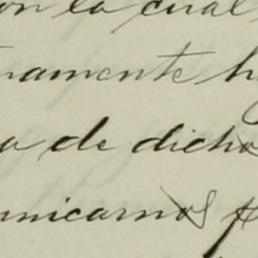 on la cual
namente h
a de dicho
unicarnos p